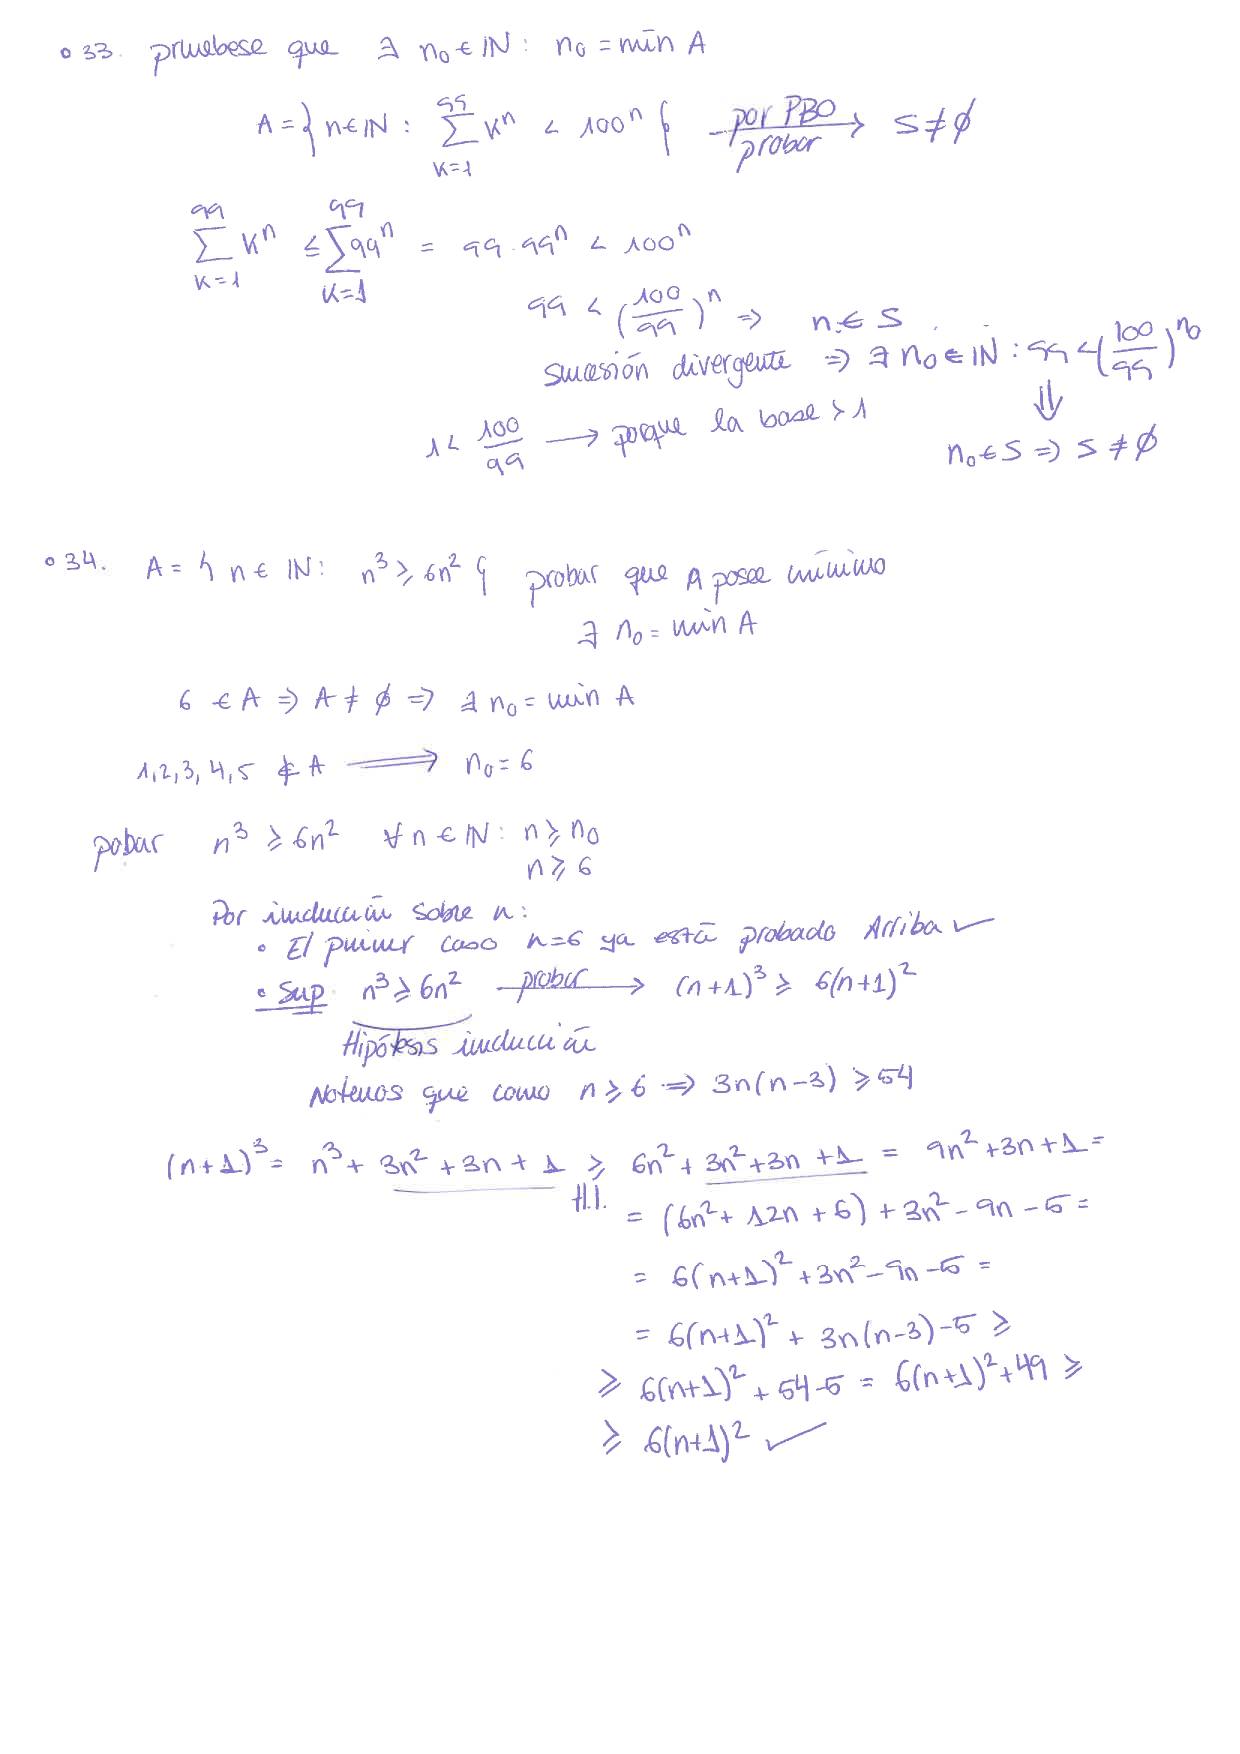 33. pruebese que ∃ n₀ ∈ ℕ : n₀ = mín A
A = } n ∈ ℕ : ∑_{k=1}^{99} kⁿ < 100ⁿ { —por PBO/probar→ S ≠ ∅
∑_{k=1}^{99} kⁿ ≤ ∑_{k=1}^{99} 99ⁿ = 99·99ⁿ < 100ⁿ
99 < (100/99)ⁿ ⇒ n ∈ S
sucesión divergente ⇒ ∃ n₀ ∈ ℕ : 99 < (100/99)^{n₀}
⇓
1 < 100/99 → porque la base > 1
n₀ ∈ S ⇒ S ≠ ∅
34. A = { n ∈ ℕ : n³ ≥ 6n² } probar que A posee mínimo
∃ n₀ = mín A
6 ∈ A ⇒ A ≠ ∅ ⇒ ∃ n₀ = mín A
1, 2, 3, 4, 5 ∉ A ⟹ n₀ = 6
pobar n³ ≥ 6n² ∀ n ∈ ℕ : n ≥ n₀
n ≥ 6
Por inducción sobre n:
• El primer caso n=6 ya está probado Arriba ✓
• Sup n³ ≥ 6n² —probar→ (n+1)³ ≥ 6(n+1)²
Hipótesis inducción
Notemos que como n ≥ 6 ⇒ 3n(n-3) ≥ 54
(n+1)³ = n³ + 3n² + 3n + 1 ≥ 6n² + 3n² + 3n + 1 = 9n² + 3n + 1 =
H.I.
= (6n² + 12n + 6) + 3n² - 9n - 5 =
= 6(n+1)² + 3n² - 9n - 5 =
= 6(n+1)² + 3n(n-3) - 5 ≥
≥ 6(n+1)² + 54-5 = 6(n+1)² + 49 ≥
≥ 6(n+1)² ✓